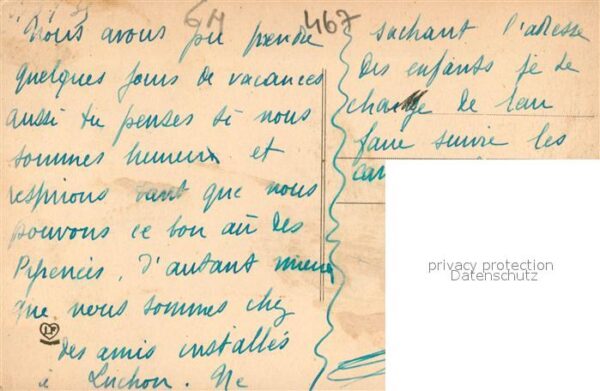 6M
467
Nous avons pu prendre
quelques jours de vacances
aussi tu penses si nous
sommes heureux et
respirons tant que nous
pouvons ce bon air des
Pyrénées, d'autant mieux
que nous sommes chez
des amis installés
à Luchon. Ne
sachant l'adresse
des enfants je te
charge de leur
faire suivre les
privacy protection
Datenschutz